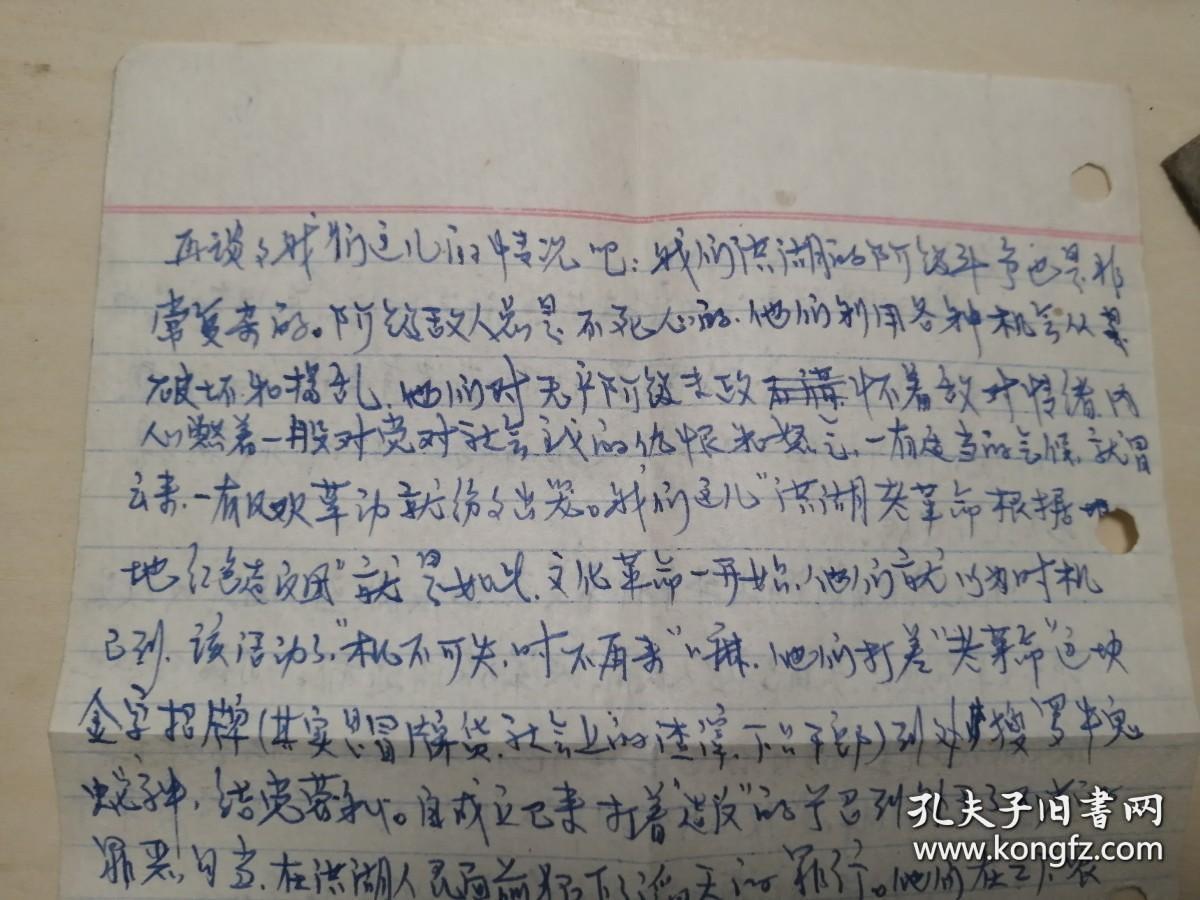 再谈了我们这儿的情况吧：我们洪湖的阶级斗争也是非
常复杂的。阶级敌人总是不死心的，他们利用各种机会从
破坏和捣乱，他们对无产阶级专政怀着敌对情绪，内
心燃着一股对党对社会主义的仇恨和怒气，一有适当的气候，就冒
出来，一有风吹草动就纷纷出笼。我们这儿“洪湖老革命根据
地红色造反团”就是如此，文化革命一开始，他们就以为时机
已到，该活动了，“机不可失，时不再来”嘛，他们打着“老革命”这块
金字招牌（其实是冒牌货，社会上的渣滓，）到处搜罗牛鬼
蛇神，结党营私。自成立已来打着“造反”的号召到
罪恶，在洪湖人民面前犯下了滔天的罪行。他们在
孔夫子旧书网
www.kongfz.com